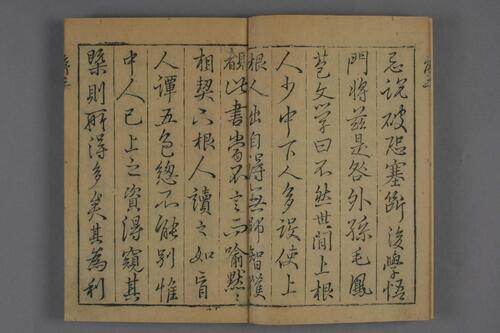 忌說破恐塞斷後學悟
門將茲是咎外孫毛鳳
苞文學曰不然世間上根
人少中下人多設使上
根人出自得無師智獲
顧此書當不言而喻默ミ
相契下根人讀之如盲
人譚五色總不能別惟
中人已上之資得窺其
槩則所得多矣其為利
序三